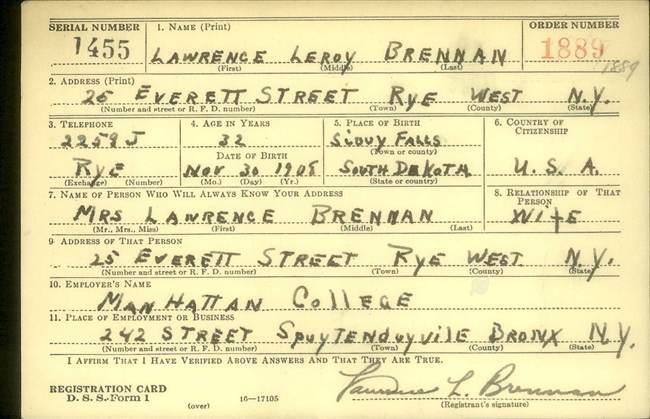 SERIAL NUMBER 1. NAME (Print) ORDER NUMBER
1455 LAWRENCE LEROY BRENNAN 1889 1889
(First) (Middle) (Last)
2. ADDRESS (Print)
25 EVERETT STREET RYE WEST N.Y.
(Number and street or R. F. D. number) (Town) (County) (State)
3. TELEPHONE 4. AGE IN YEARS 5. PLACE OF BIRTH 6. COUNTRY OF CITIZENSHIP
2259 J 32 SIOUX FALLS
DATE OF BIRTH (Town or county)
RYE NOV 30 1908 SOUTH DAKOTA U. S. A.
(Exchange) (Number) (Mo.) (Day) (Yr.) (State or country)
7. NAME OF PERSON WHO WILL ALWAYS KNOW YOUR ADDRESS 8. RELATIONSHIP OF THAT PERSON
MRS LAWRENCE BRENNAN WIFE
(Mr., Mrs., Miss) (First) (Middle) (Last)
9 ADDRESS OF THAT PERSON
25 EVERETT STREET RYE WEST N.Y.
(Number and street or R. F. D. number) (Town) (County) (State)
10. EMPLOYER'S NAME
MANHATTAN COLLEGE
11. PLACE OF EMPLOYMENT OR BUSINESS
242 STREET SPUYTENDUYVILE BRONX N.Y.
(Number and street or R. F. D. number) (Town) (County) (State)
I AFFIRM THAT I HAVE VERIFIED ABOVE ANSWERS AND THAT THEY ARE TRUE.
REGISTRATION CARD
D. S. S. Form 1 16—17105 Lawrence L. Brennan
(over) (Registrant's signature)